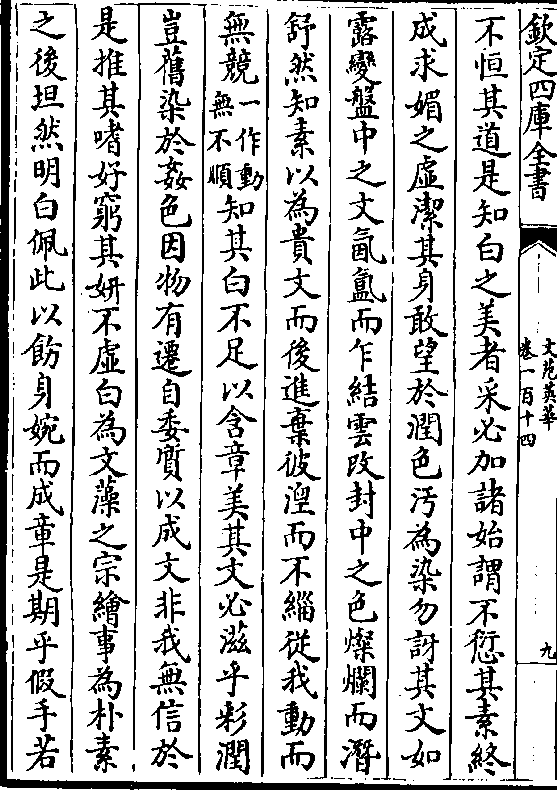 欽定四庫全書
文苑英華
卷一百十四
九
不恒其道是知白之美者采必加諸始謂不愆其素終
成求媚之虛潔其身敢望於潤色汚為染勿訝其文如
露變盤中之文氤氳而乍結雲改封中之色燦爛而潛
舒然知素以為貴文而後進棄彼湼而不緇從我動而
無競一作動無不順知其白不足以含章美其文必滋乎彩潤
豈舊染於姦色因物有遷自委質以成文非我無信於
是推其嗜好窮其妍不虛白為文藻之宗繪事為朴素
之後坦然明白佩此以飭身婉而成章是期乎假手若